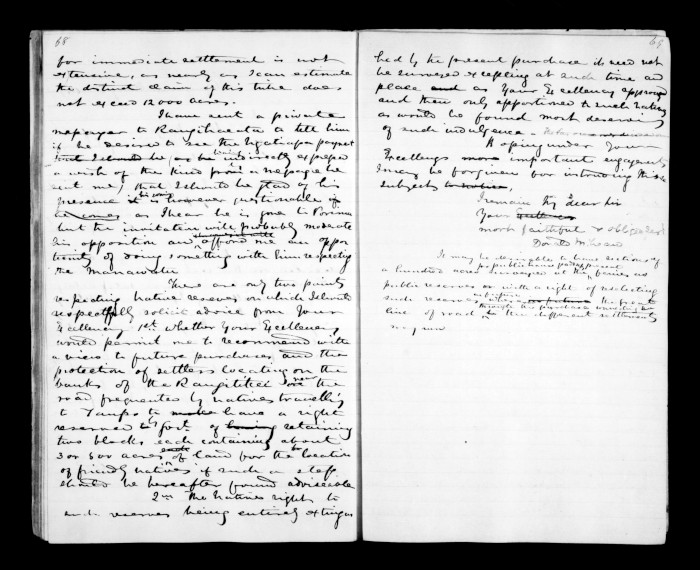 68
for immediate settlement is not
extensive, as nearly as I can estimate
the district claim of this tribe does
not exceed 12000 acres.
I have sent a private
messenger to Rangihaeata to tell him
if he desires to see the Ngatiapa payment
he indirectly expressed
a wish of the kind from a message he
sent me, that I should be glad of his
presence it is however questionable if
he comes as I hear he is gone to Porirua
but the invitation will probably moderate
his opposition and afford me an oppor
tunity of doing something with him respecting
the Manawatu
There are only two points
respecting Native reserves on which I should
respectfully solicit advice from Your
Excellency 1st. whether Your Excellency
would permit me to recommend with
a view to future purchases and the
protection of settlers locating on the
banks of the Rangitikei near the
road frequented by natives travelling
to Taupo to make have a right
reserved to Govt. of having retaining
two blocks each containing about
3 or 500 acres of land for the location
of friendly natives if such a step
should be hereafter found adviseable
2nd The Natives right to
such reserves being entirely exting
69
hed by the present purchase it need not
be surveyed excepting at such time and
place and as Your Excellency approves
and then only apportioned to such natives
as would be found most deserving
of such indulgence
Hoping under Your
Excellencys more important engagements
I may be forgiven for introducing this
subject
I remain My dear Sir
Your
most faithful & obliged Servt
Donald McLean
It may be desirable to have sections of
a hundred acres surveyed at the ferries as
public reserves or with a right of selecting
such reserves the great
line of road to the different settlements